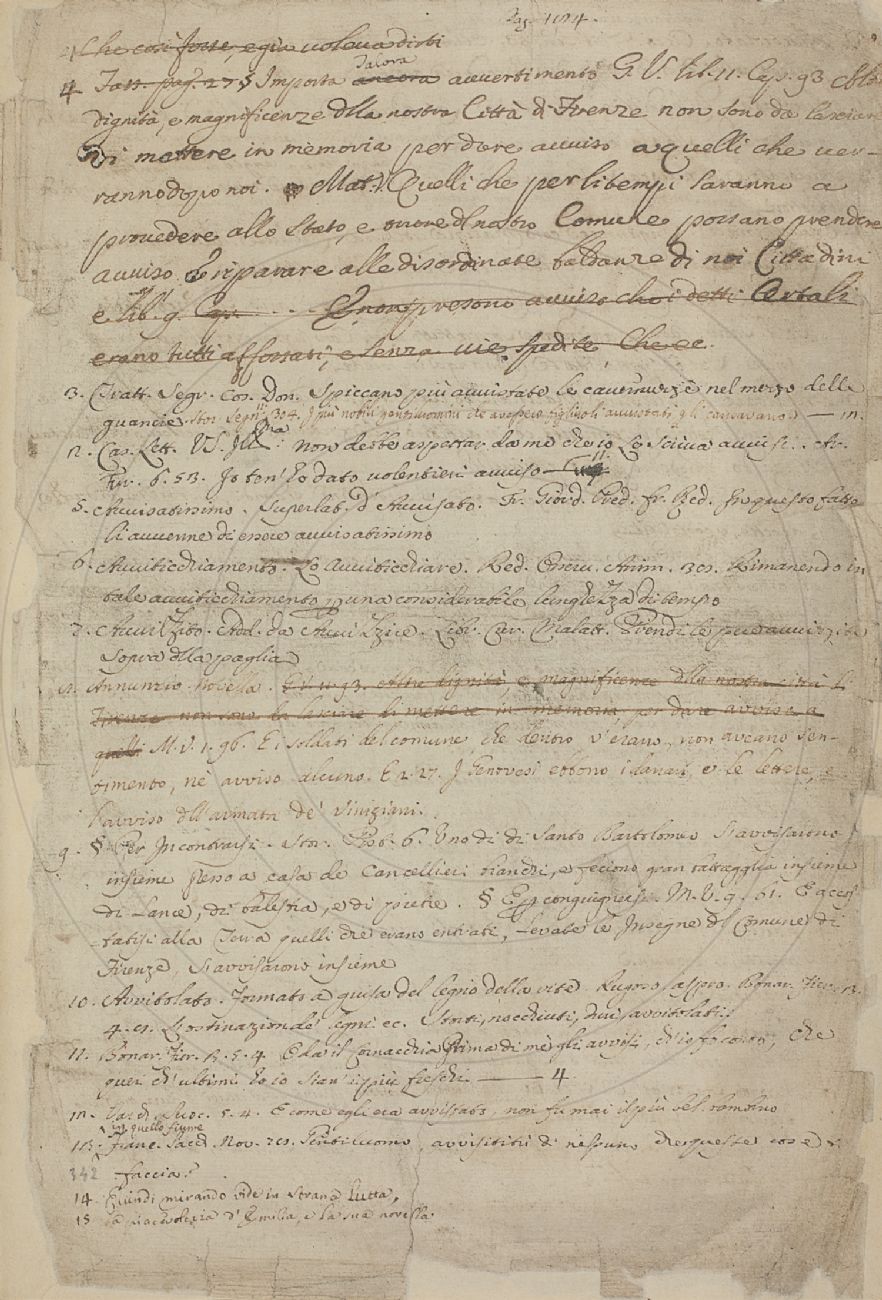 Pag. 1184.
Che così fosse, e gia voleva dirti
4 Tratt. pag. 275 Importa ancora talora avvertimento G. V. lib. 11. Cap. 93 Altre
dignità, e magnificenze della nostra Città di Firenze non sono da lasciare
di mettere in memoria per dare avviso a quelli che ver-
ranno dopo noi. Quelli che per li tempi saranno a
provedere allo Stato, e onore del nostro Comune possano prendere
avviso. riparare alle disordinate baldanze di noi Cittadini
e lib. 9. Cap. .... non presono avviso che i detti
erano tutti affossati, e senza vie spedite Che ec.
3. Tratt. Segr. Cos. Don. Spiccano più avvistate le nel mezzo delle
guancie. 1304. I più nobili gentiluomini che avessero figliuoli avvistati gli
2. Cas. Lett. VS. Ill.ma non debbe aspettar da me che io Le scriva avvisi. Ar.
Fur. 6. 53. Io ten' ho dato volentieri avviso
5. Avvisatissimo. Superlat. d'Avvisato. Fr. Giord. Pred. fr. Red. In questo fatto
li avvenne di essere avvisatissimo
6. Avviticchiamento. Lo Avviticchiare. Red. Osserv. Anim. Rimanendo in
tale avviticchiamento una considerabile lunghezza di tempo
7. Avvizzito. Add. da Avvizzire. Libr. Cur. Malatt. Prendi le pere avvizzite
sopra della paglia
Annunzio Novella. G. V. 11. 93. Altre dignità, e magnificenze della nostra città di
Firenze non sono da lasciare di mettere in memoria per dare avviso a
quelli M. V. 1. 96. E i soldati del comune, che dentro v'erano, non aveano sen-
timento, nè avviso alcuno. E 2. 27. I Genovesi ebbono i danari, e le lettere, e
l'avviso dell'armata de' Viniziani.
9. § Per Incontrarsi. Stor. Pist. 6. Uno di di Santo Bartolomeo s'avvisarono
insieme presso a casa de Cancellieri bianchi, e feciono gran battaglia insieme
di Lance, di balestra, e di pietre. § E M. V. 9. 61. E acces
tatisi alla Terra quelli che erano entrati, levate le Insegne del Comune di
Firenze, s'avvisarono insieme
10. Avvitolato. Formato a guisa del legno della vite. Rugoso aspro. Bonar. Fier.
Storti, nocchiuti, duri avvitolati
11. Bonar. Fier. 4. E da il Cornacchia Prima di me gli avvisi, ch'io fo conto, che
quei ch'ultimi ho io sian' i più freschi —— 4
12. 5. 4. E come egli era avvistato, non fu mai il più bel bambino
in quello fiume
13. Franc. Sacch. Nov. Gentiluomo, avvisititi di nessuno che queste cose
342 faccia?
14. Quindi mirando vide in strana lutta,
15 La piacevolezza d'Emilia, e la sua novella